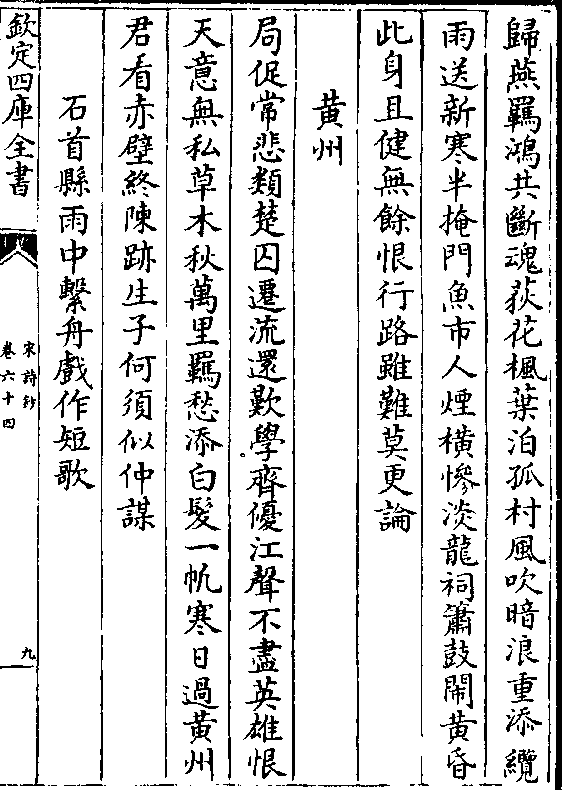 歸燕羈鴻共斷魂荻花楓葉泊孤村風吹暗浪重添纜
雨送新寒半掩門魚市人煙橫慘淡龍祠簫鼓鬧黃昏
此身且健無餘恨行路雖難莫更論
黃州
局促常悲類楚囚遷流還歎學齊優江聲不盡英雄恨
天意無私草木秋萬里羈愁添白髮一帆寒日過黃州
君看赤壁終陳跡生子何須似仲謀
石首縣雨中繫舟戲作短歌
欽定四庫全書
宋詩鈔
卷六十四
九